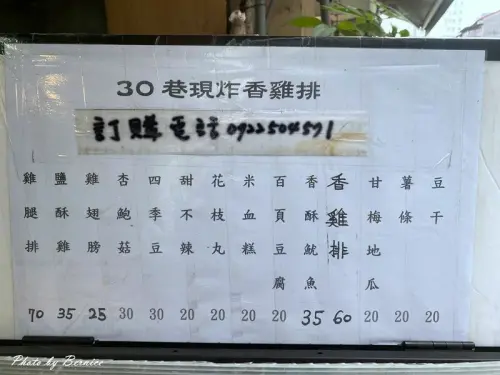 30 巷現炸香雞排
訂購電話 0922504571
雞腿排 70
鹽酥雞 35
雞翅膀 25
杏鮑菇 30
四季豆 30
甜不辣 20
花枝丸 20
米血糕 20
百頁豆腐 20
香酥魷魚 35
香雞排 60
甘梅地瓜 20
薯條 20
豆干 20
Photo by Bernice